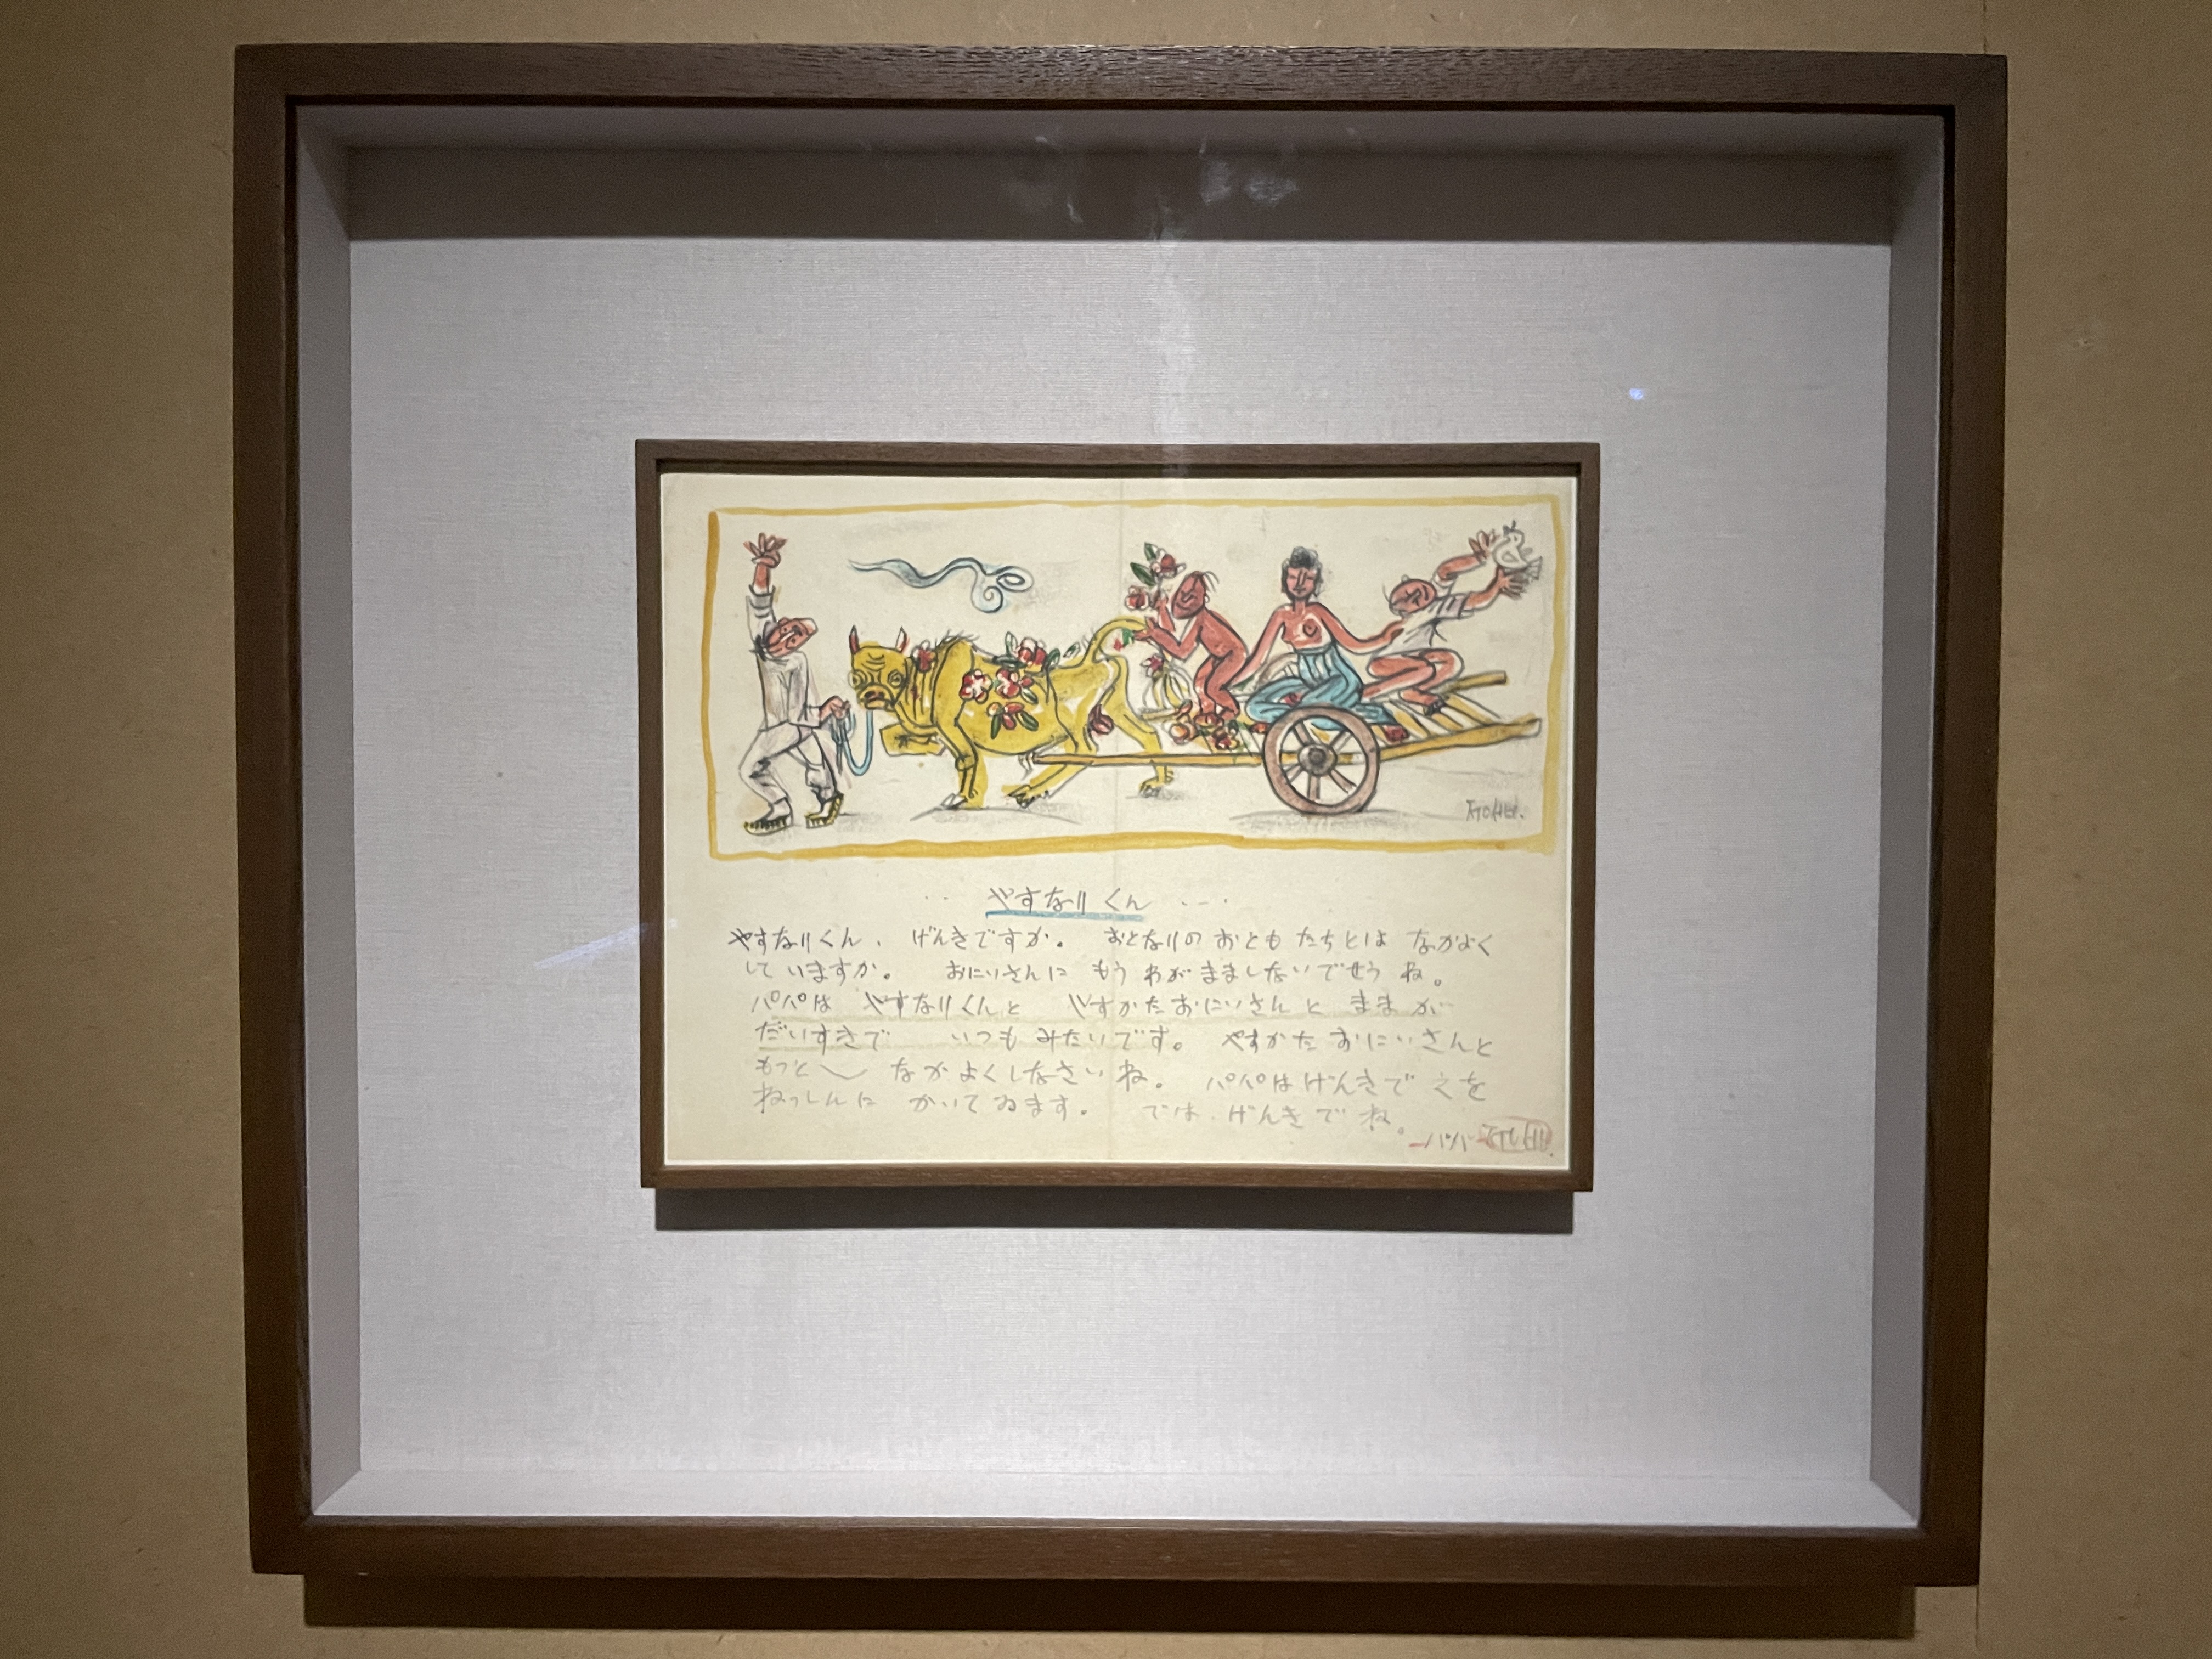 ㅈㅜㅇㅅㅓㅂ
やすなりくん
やすなりくん、げんきですか。 おとなりの おともたちとは なかよく
していますか。 おにいさんに もう わがまましないでせう ね。
パパは やすなりくんと やすかたおにいさんと ままが
だいすきで いつも みたいです。 やすかた おにいさんと
もっと〱 なかよくしなさい ね。 パパはげんきで えを
ねっしんに かいてゐます。 では、げんきで ね。
パパ ㅈㅜㅇㅅㅓㅂ